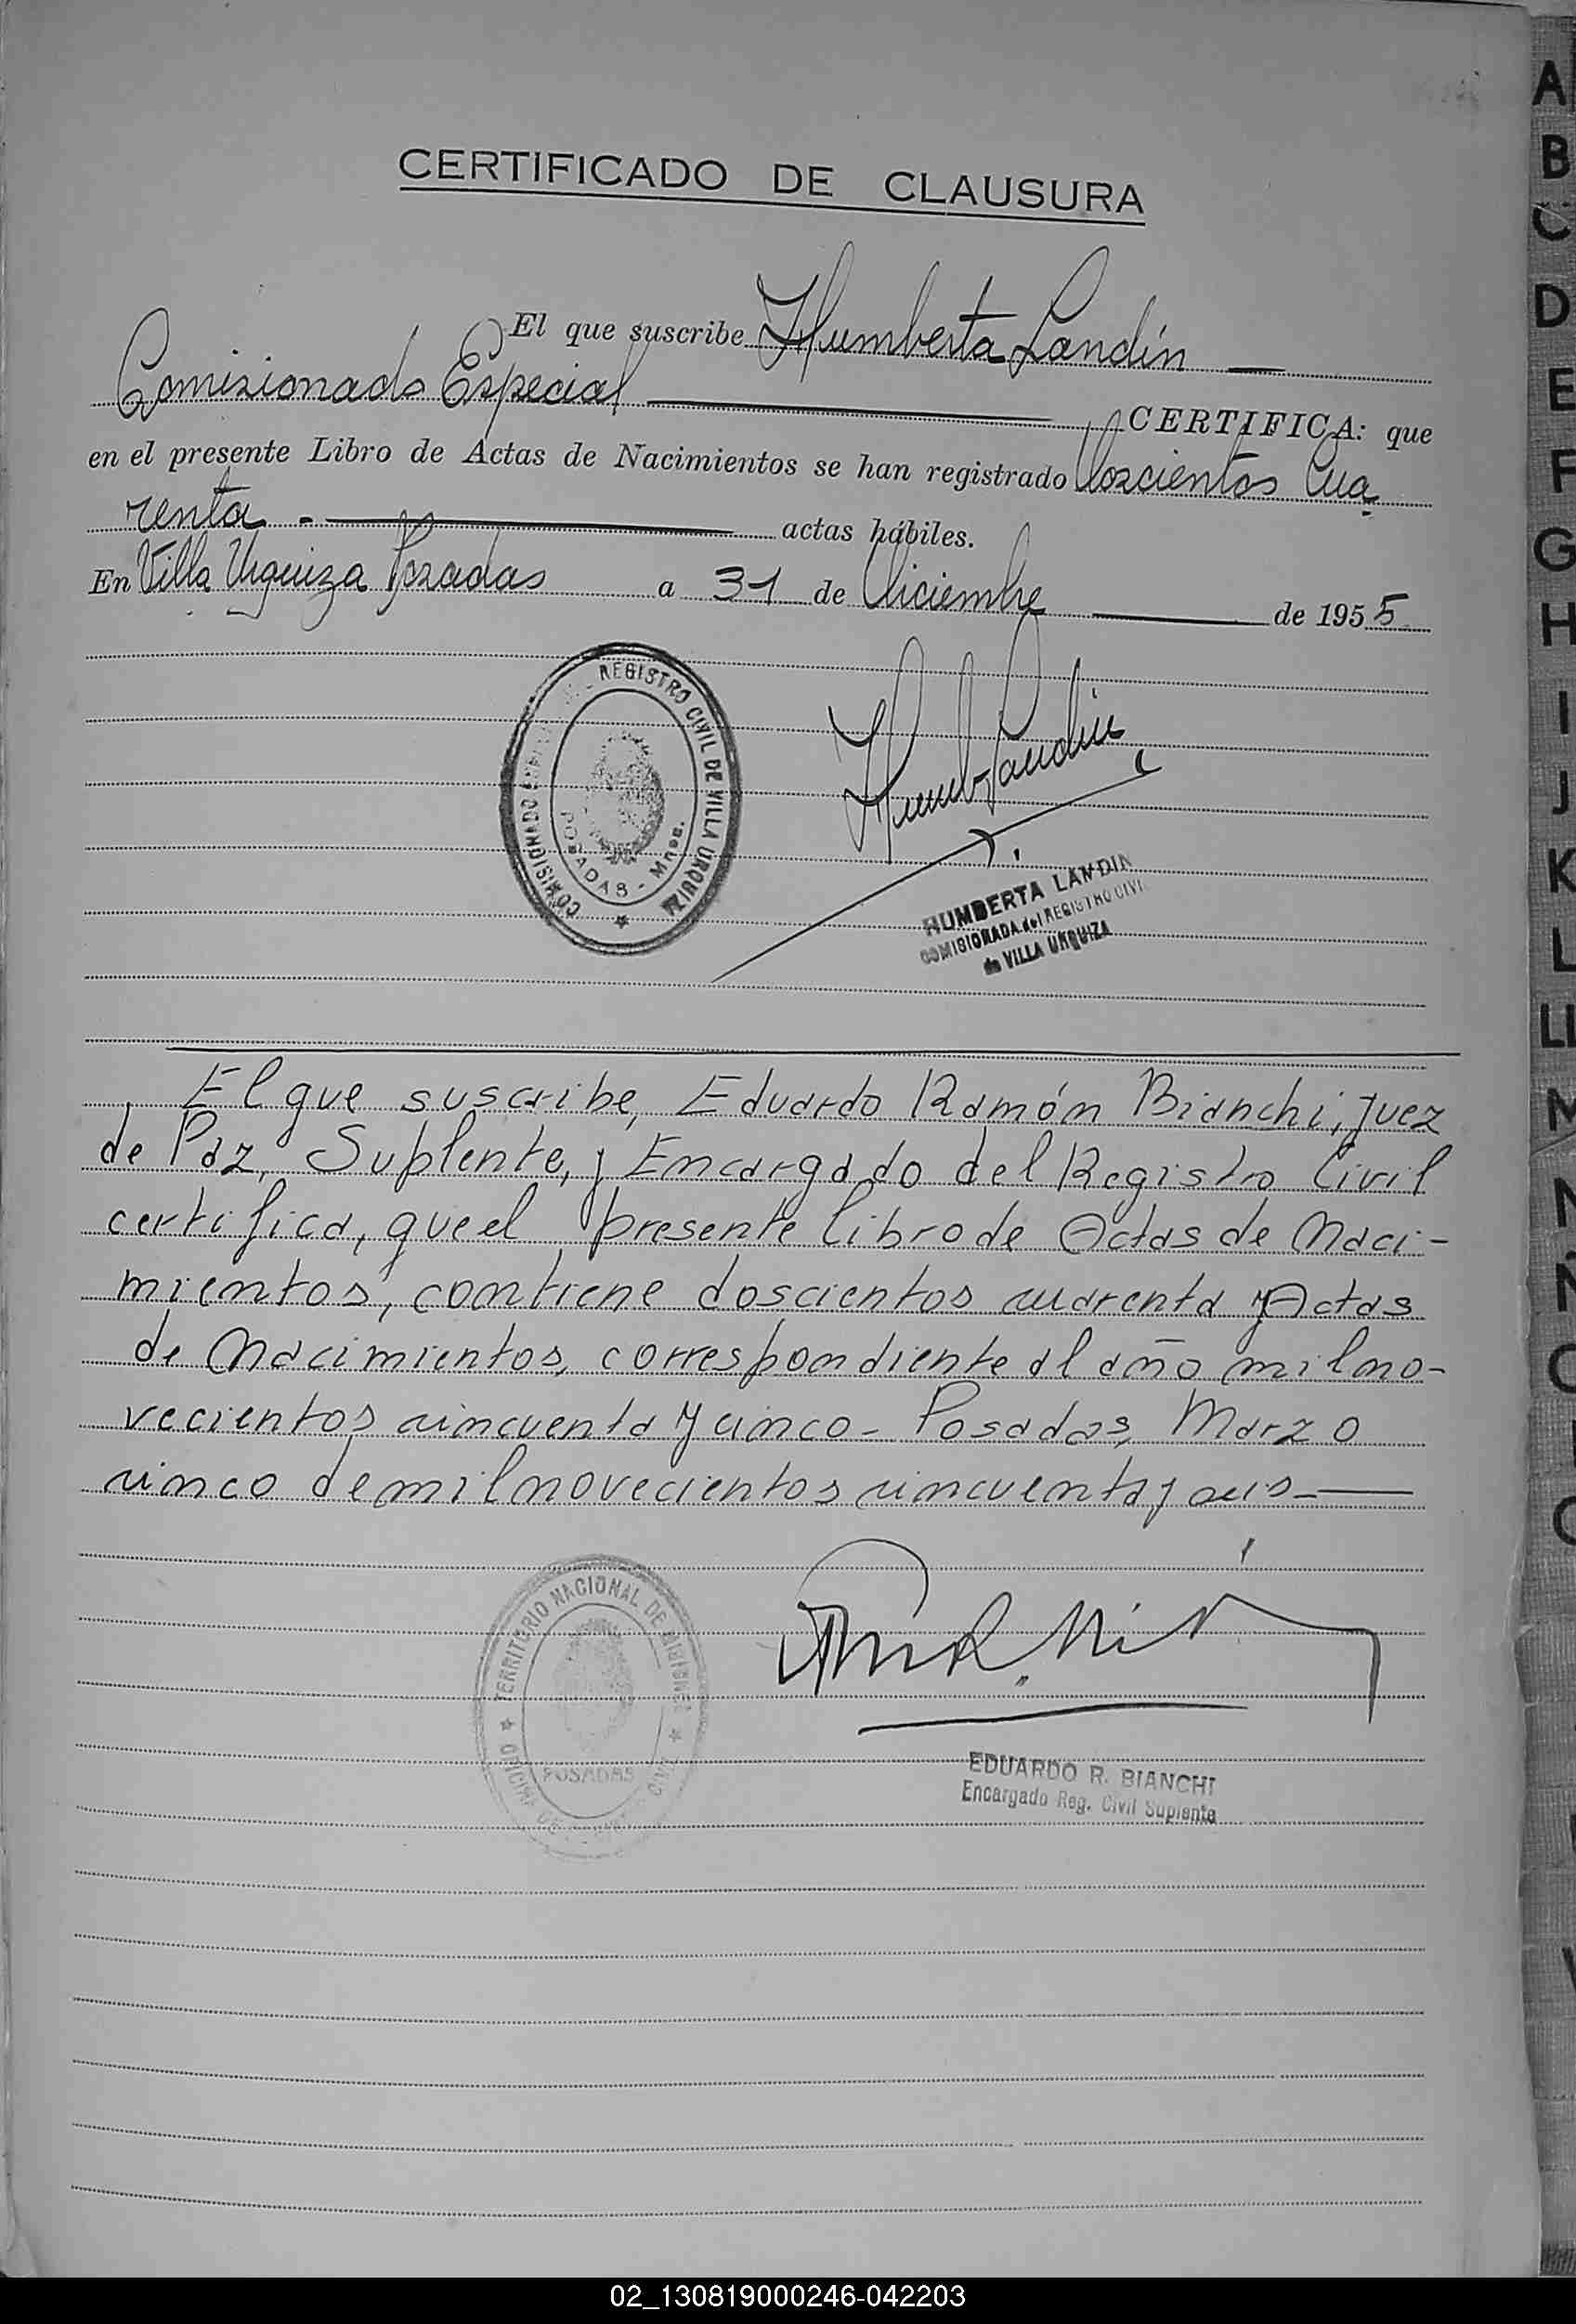 CERTIFICADO DE CLAUSURA
El que suscribe Humberta Landín
Comisionado Especial CERTIFICA: que
en el presente Libro de Actas de Nacimientos se han registrado Doscientos Cua
renta.- actas hábiles.
En Villa Urquiza Posadas a 31 de Diciembre de 1955
REGISTRO CIVIL DE VILLA URQUIZA
COMISIONADO
POSADAS - Mnes.
Humb Landin
HUMBERTA LANDIN
COMISIONADA del REGISTRO CIVI
de VILLA URQUIZA
El que suscribe, Eduardo Ramón Bianchi, Juez
de Paz, Suplente, y Encargado del Registro Civil
certifica, que el presente libro de Actas de Naci-
mientos, contiene doscientos cuarenta y Actas
de Nacimientos, correspondiente al año mil no-
vecientos cincuenta y cinco - Posadas, Marzo
cinco de mil novecientos cincuenta y seis
TERRITORIO NACIONAL DE MISIONES
OFICINA CIVIL
POSADAS
EDUARDO R. BIANCHI
Encargado Reg. Civil Suplente
A
B
C
D
E
F
G
H
I
J
K
L
LL
M
N
Ñ
02_130819000246-042203